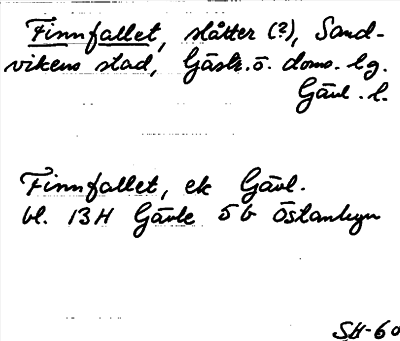 Finnfallet, slåtter (?), Sand-
vikens stad, Gästr. ö. doms. lg.
Gävl. l.
Finnfallet, ek Gävl.
bl. 13H Gävle 5 b Östanbyn
SH-60